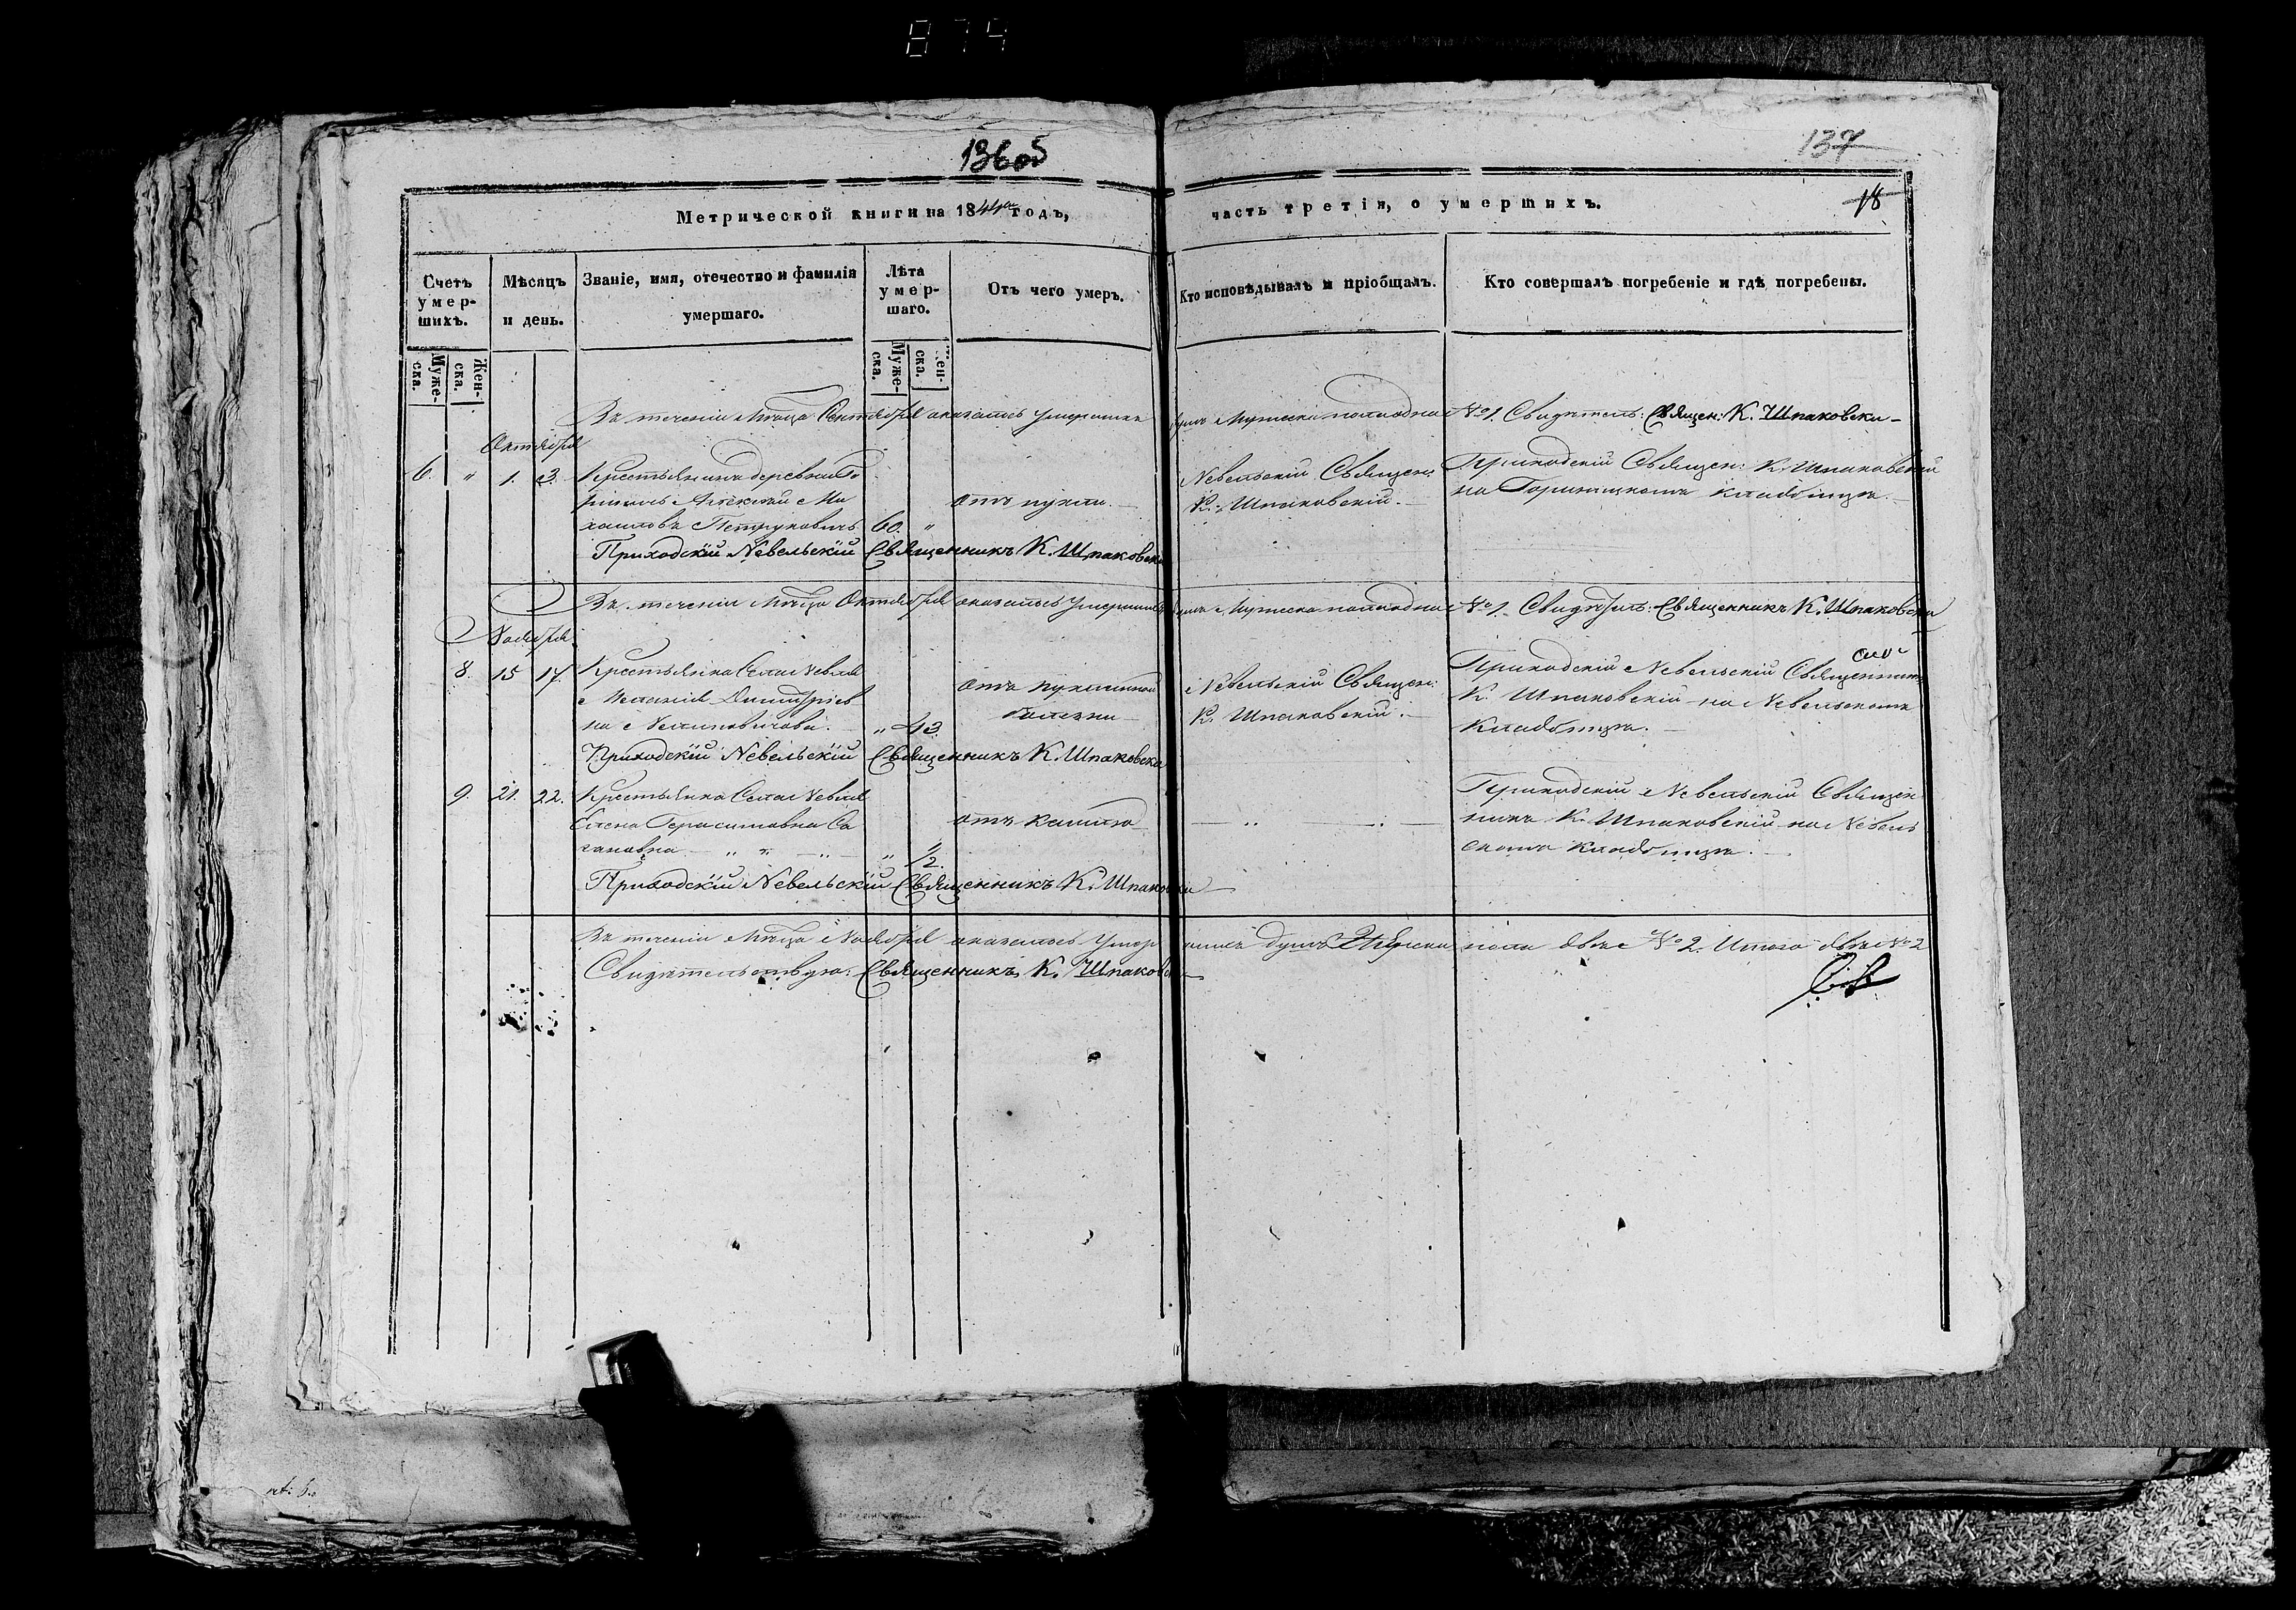 874
136об
137
Метрической книги на 1844й годъ,
часть третія, о умершихъ.
18
Счетъ умершихъ.
Мѣсяцъ и день.
Званіе, имя, отечество и фамилія умершаго.
Лѣта умершаго.
Отъ чего умеръ.
Кто исповѣдывалъ и пріобщалъ.
Кто совершалъ погребеніе и гдѣ погребены.
Мужеска.
Женска.
Мужеска.
Женска.
Въ теченіи Мѣсяца Сентября оказалось умершихъ душъ Мужеска пола одна №1. Свидѣтель: Священ: К. Шпаковски
Октября
6. " 1. 3. Крестьянинъ деревни Го
Алексѣй Ми
хаиловъ Петруковичъ 60. "
отъ пухли.
Невельскій Священ:
К. Шпаковскій.
Приходскій Священ: К. Шпаковскій
на кладбищѣ.
Приходскій Невельскій Священникъ К. Шпаковски
Въ теченіи Мѣсяца Октября оказалось умершихъ душъ Мужеска пола одна №1. Священникъ К. Шпаковски
Ноября
8. 15 17. Крестьянка Села Невля
Меланія Димитріев
на " 43.
отъ
болезни
Невельскій Священ:
К. Шпаковскій.
Приходскій Невельскій Священникъ
К. Шпаковскій на Невельскомъ
кладбищѣ.
Приходскій Невельскій Священникъ К. Шпаковски
9. 21. 22. Крестьянка Села Невля
Елена Герасимовна Са
" 1/2.
отъ кашлю
Приходскій Невельскій Священ
никъ К. Шпаковскій на Невель
скомъ кладбищѣ.
Приходскій Невельскій Священникъ К. Шпаковски
Въ теченіи Мѣсяца Ноября оказалось умершихъ душъ Женска пола двѣ №2. Итого двѣ №2
Свидѣтельствую: Священникъ К. Шпаковски